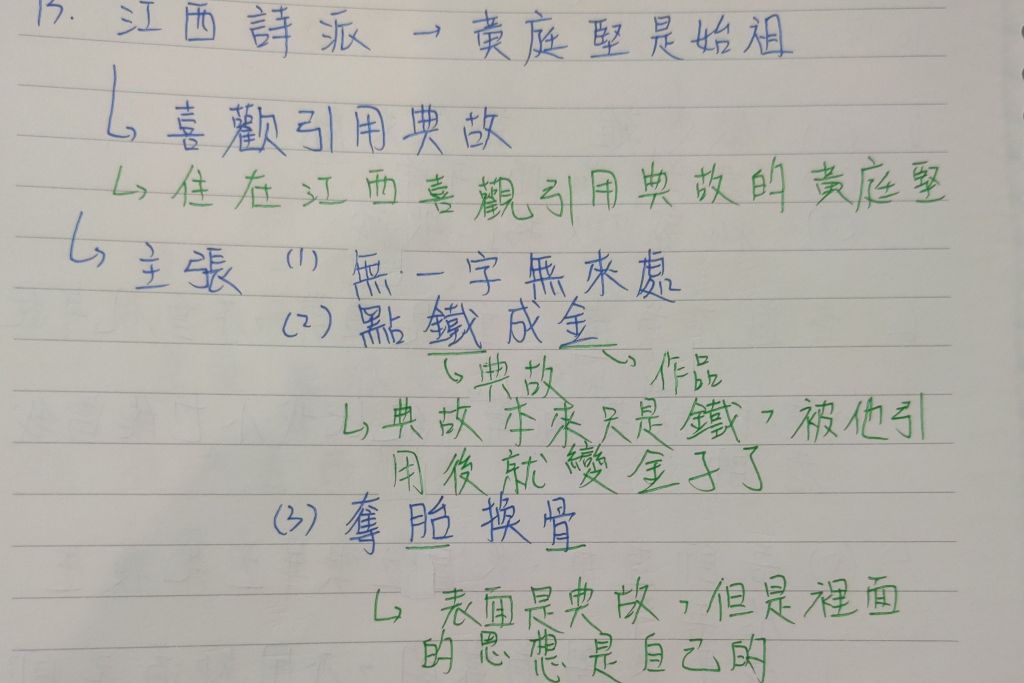 13. 江西詩派→黃庭堅是始祖
↳喜歡引用典故
↳住在江西喜觀引用典故的黃庭堅
↳主張 (1) 無一字無來處
(2) 點鐵成金
↳典故 ↳作品
↳典故本來只是鐵，被他引
用後就變金子了
(3) 奪胎換骨
↳表面是典故，但是裡面
的思想是自己的